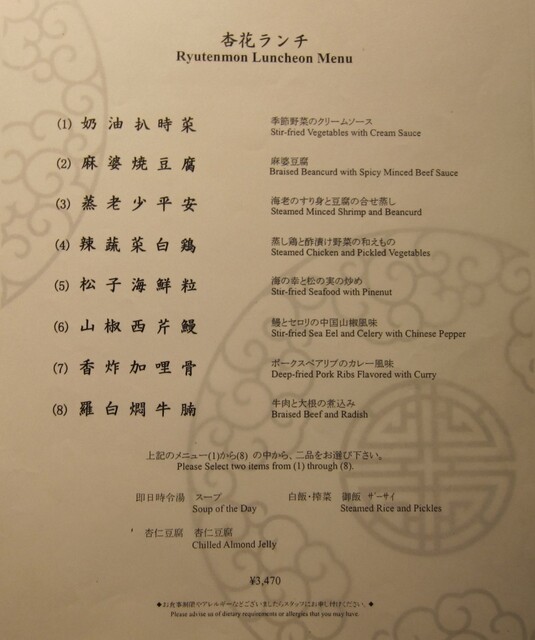 杏花ランチ
Ryutenmon Luncheon Menu
(1) 奶油扒時菜 季節野菜のクリームソース
Stir-fried Vegetables with Cream Sauce
(2) 麻婆焼豆腐 麻婆豆腐
Braised Beancurd with Spicy Minced Beef Sauce
(3) 蒸老少平安 海老のすり身と豆腐の合せ蒸し
Steamed Minced Shrimp and Beancurd
(4) 辣蔬菜白鶏 蒸し鶏と酢漬け野菜の和えもの
Steamed Chicken and Pickled Vegetables
(5) 松子海鮮粒 海の幸と松の実の炒め
Stir-fried Seafood with Pinenut
(6) 山椒西芹鰻 鰻とセロリの中国山椒風味
Stir-fried Sea Eel and Celery with Chinese Pepper
(7) 香炸加哩骨 ポークスペアリブのカレー風味
Deep-fried Pork Ribs Flavored with Curry
(8) 羅白燜牛腩 牛肉と大根の煮込み
Braised Beef and Radish
上記のメニュー(1)から(8) の中から、二品をお選び下さい。
Please Select two items from (1) through (8).
即日時令湯 スープ 白飯・搾菜 御飯 ザーサイ
Soup of the Day Steamed Rice and Pickles
杏仁豆腐 杏仁豆腐
Chilled Almond Jelly
¥3,470
◆お食事制限やアレルギーなどございましたらスタッフにお申し付けください。◆
Please advise us of dietary requirements or allergies that you may have.